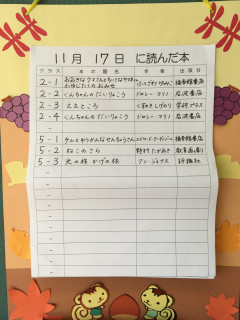 11月 17日 に読んだ本
クラス 本の題名 作者 出版社
2-1 福音館書店
2-2 くんちゃんのだいりょこう ドロシー・マリノ 岩波書店
2-3 ええところ くすのきしげのり 学研プラス
2-4 くんちゃんのだいりょこう ドロシー・マリノ 岩波書店
-
5-1 チムとゆうかんなせんちょうさん エドワード・アーディゾーニ 福音館書店
5-2 ねこのさら 野村たかあき 教育画劇
5-3 光の旅 かげの旅 アン・ジョナス 評論社
-
-
-
-
-
-
-